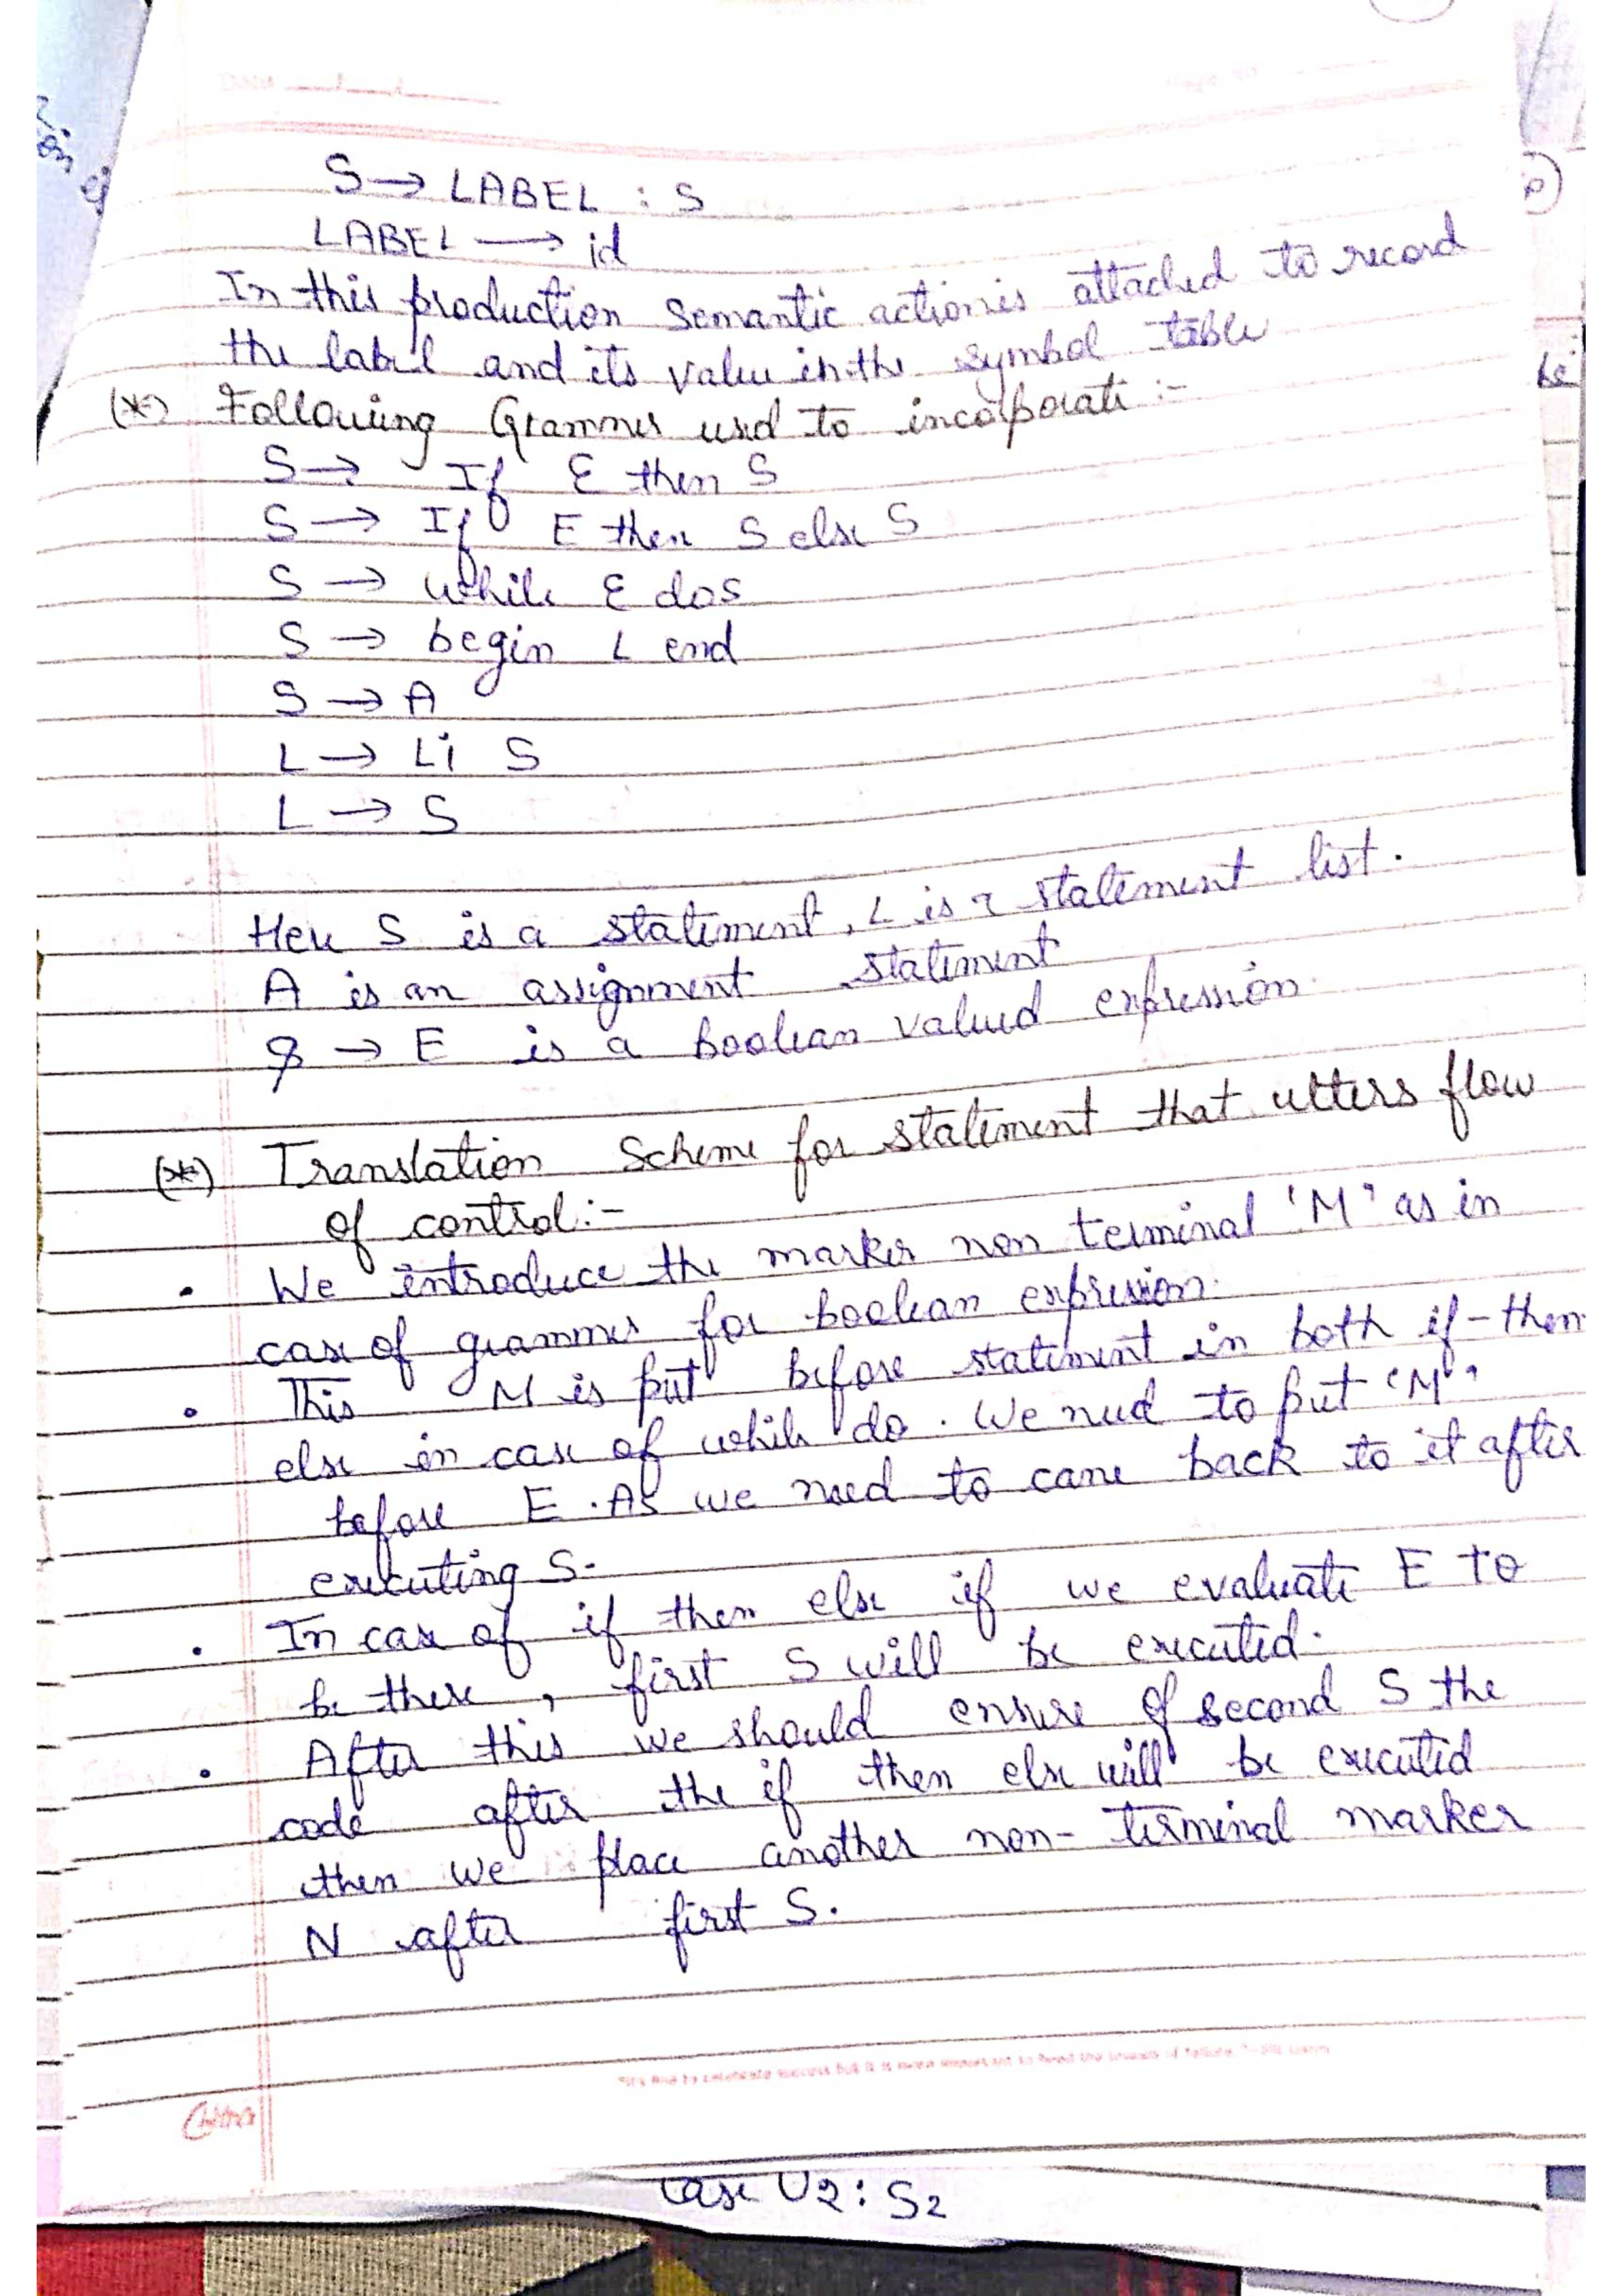 S → LABEL : S
LABEL → id
In this production semantic action is attached to record
the label and its value in the symbol table
(*) Following Grammer used to incorporate :-
S → If E then S
S → If E then S else S
S → while E do S
S → begin L end
S → A
L → L; S
L → S
Here S is a statement, L is a statement list.
A is an assignment statement
→ E is a Boolean valued expression.
(*) Translation Scheme for statement that ulters flow
of control:-
• We introduce the marker non terminal 'M' as in
case of grammer for boolean expression.
• This M is put before statement in both if - then
else in case of while do. We need to put 'M'
before E. As we need to came back to it after
executing S.
• In case of if then else if we evaluate E to
be there, first S will be executed.
• After this we should ensure of second S the
code after the if then else will be executed
then we place another non- terminal marker
N after first S.
case V2: S2